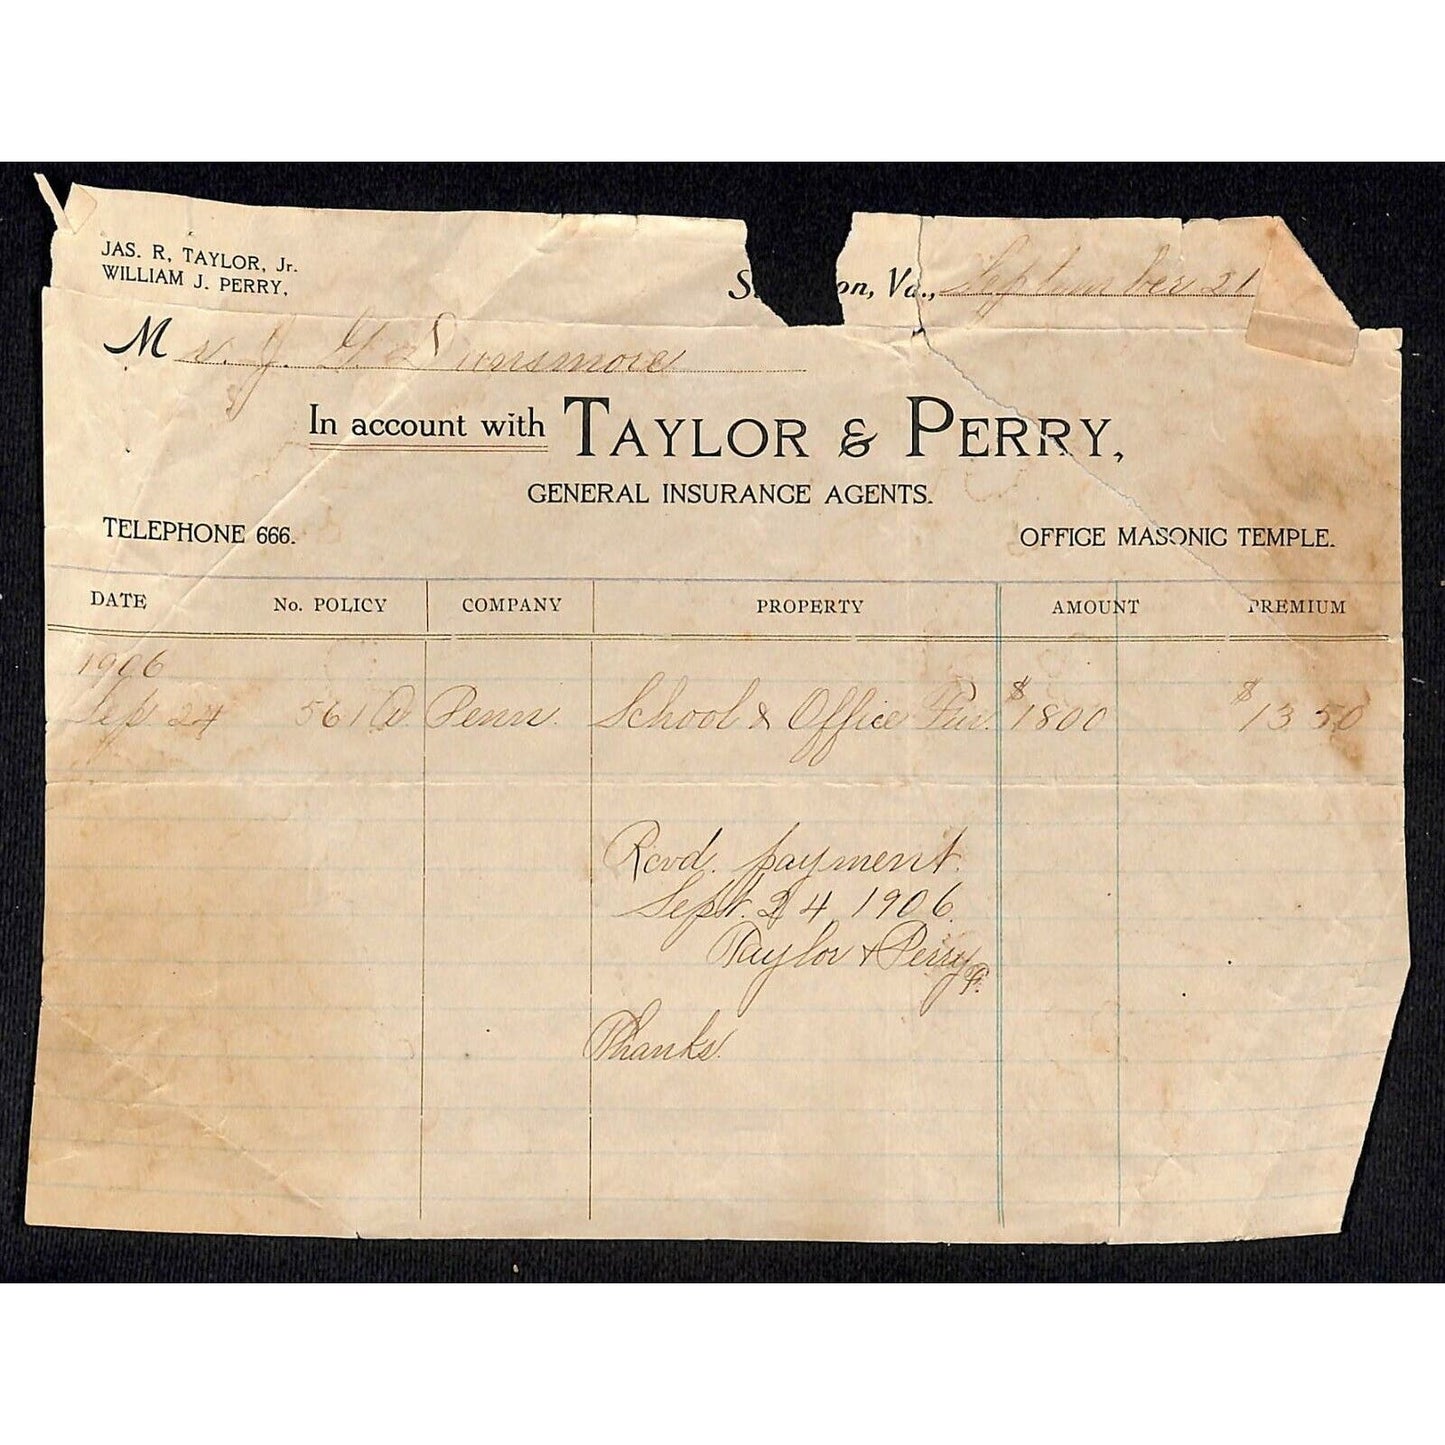 JAS. R, TAYLOR, Jr.
WILLIAM J. PERRY,
on, Va., September 21
Mr. J. G. Dunsmore
In account with TAYLOR & PERRY,
GENERAL INSURANCE AGENTS.
TELEPHONE 666. OFFICE MASONIC TEMPLE.
DATE No. POLICY COMPANY PROPERTY AMOUNT PREMIUM
1906
Sep. 24 561 Penn. School & Office Fur. $1800 $13 50
Rcvd. payment.
Sept. 24 1906.
Taylor & Perry
P.
Thanks.